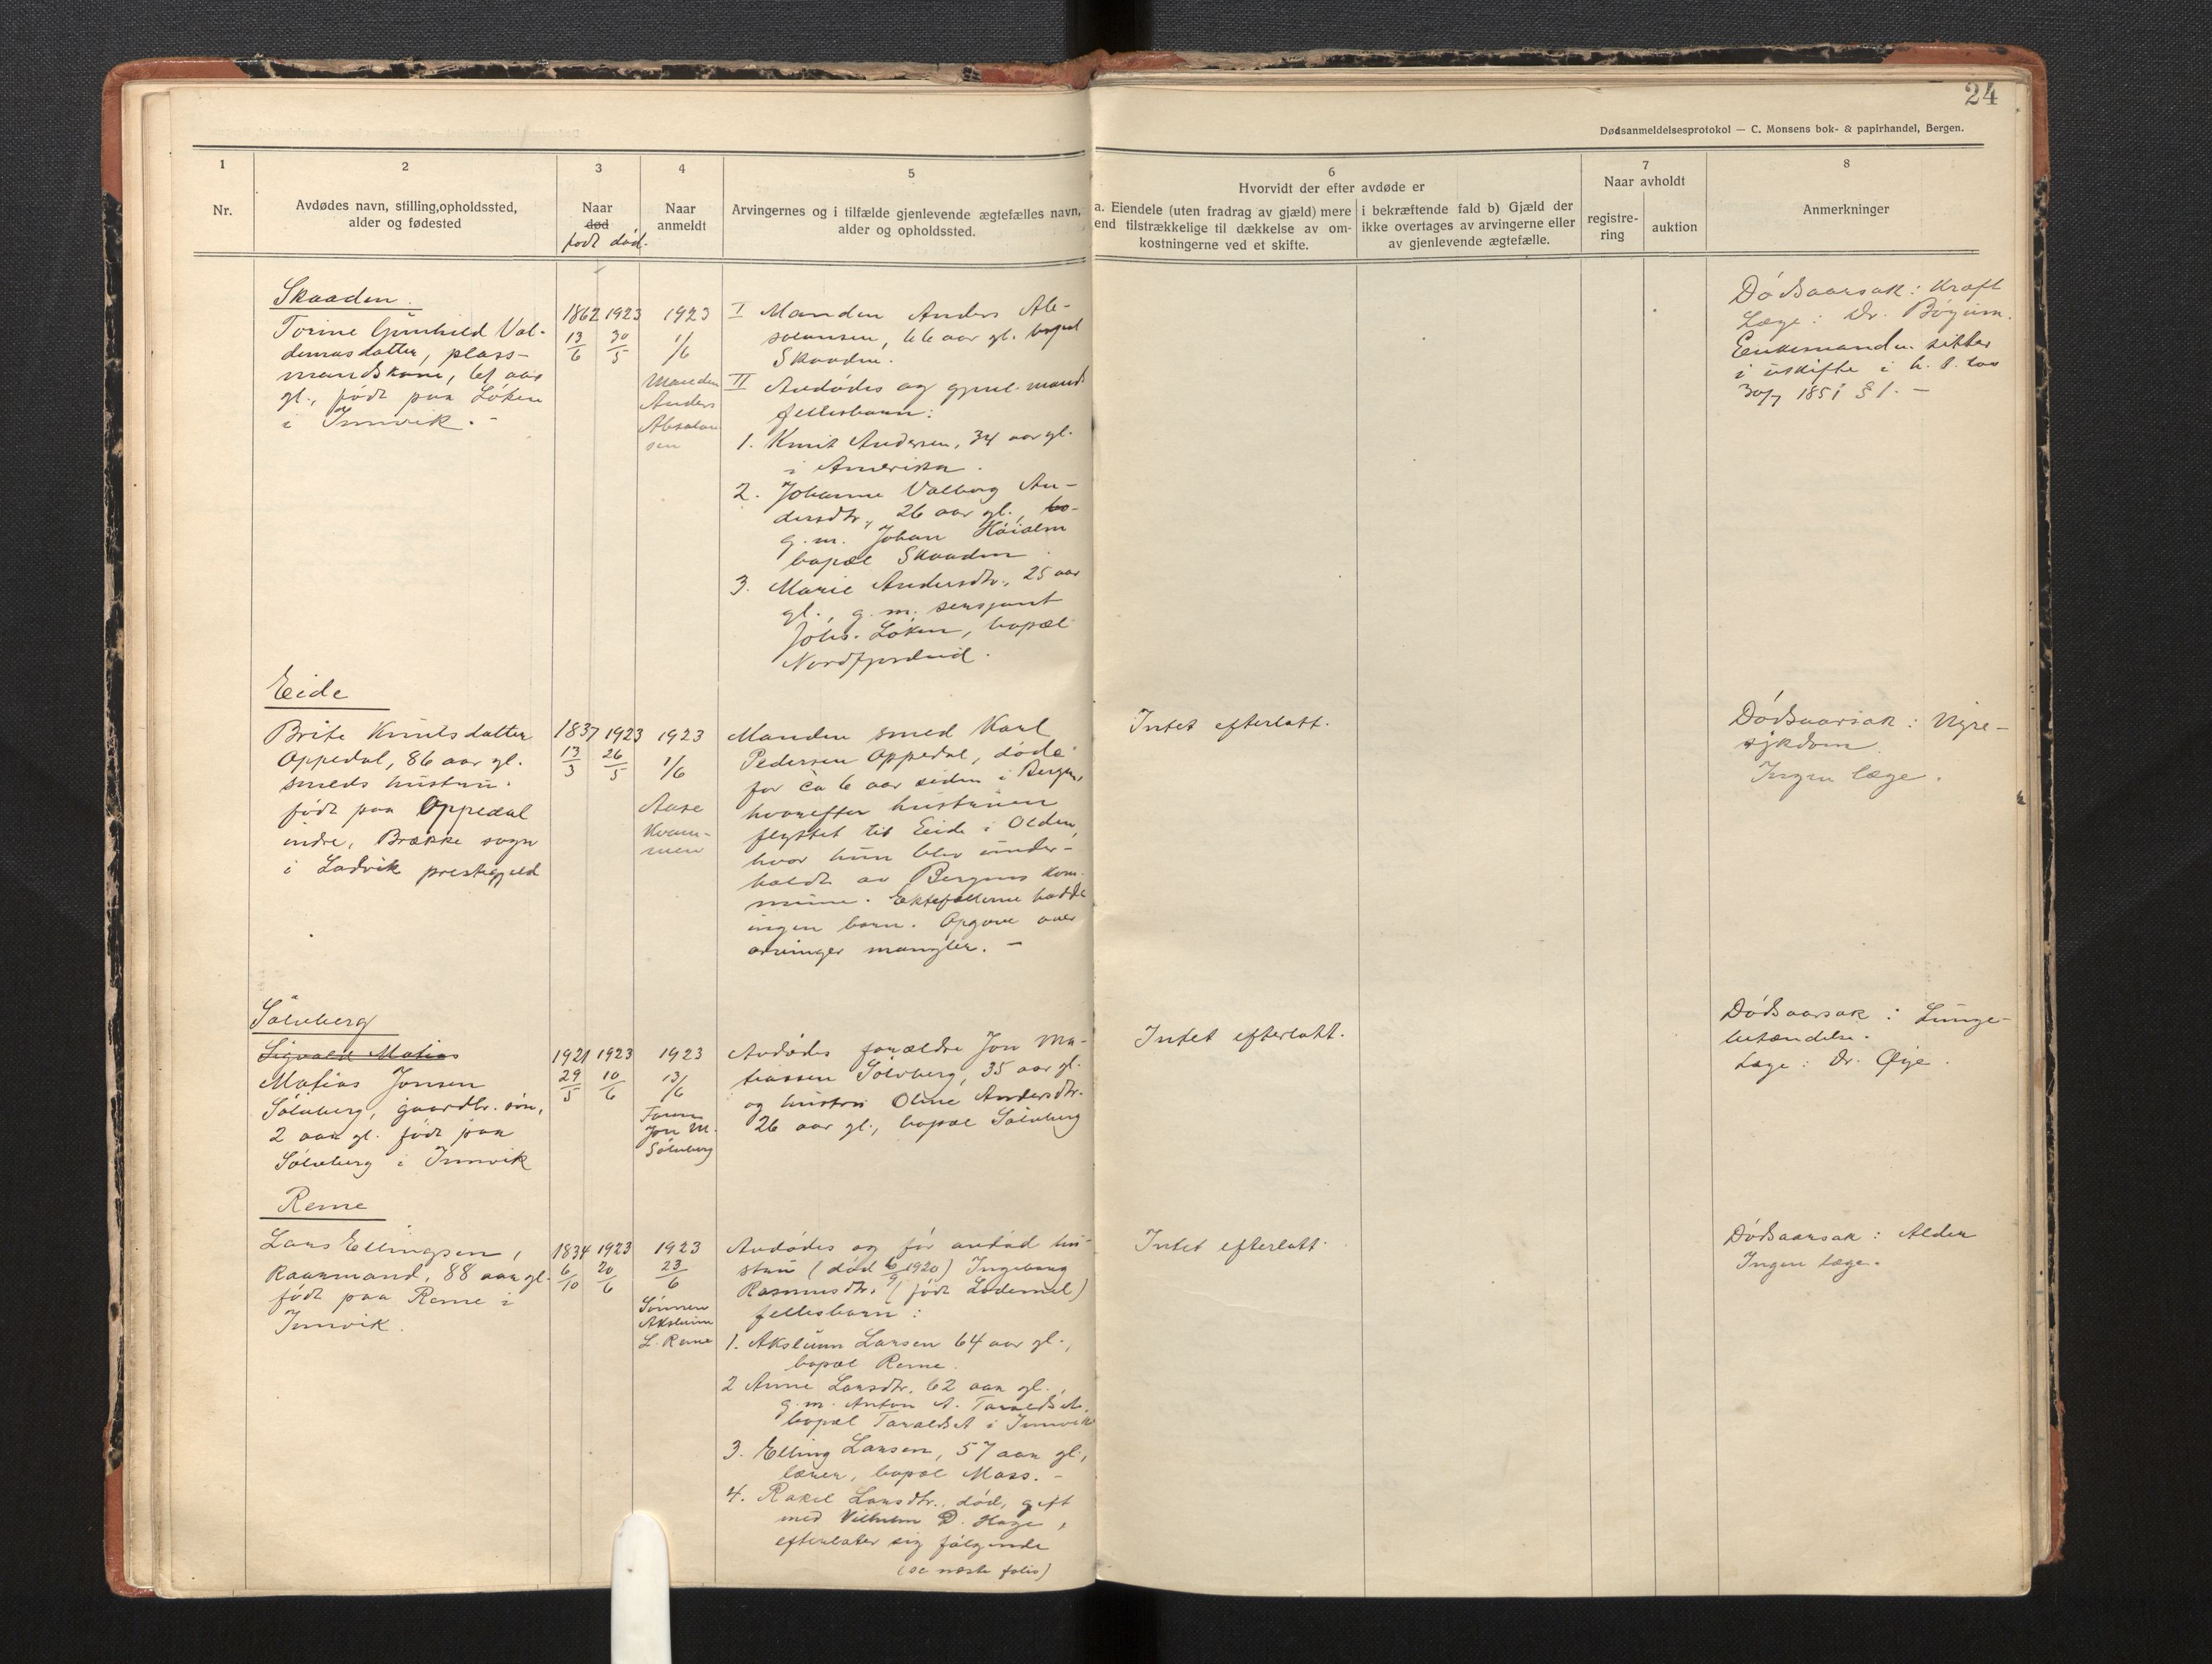 24
Dødsanmeldelsesprotokol — C. Monsens bok- & papirhandel, Bergen.
1
2
3
4
5
6
7
8
Nr.
Avdødes navn, stilling, opholdssted,
alder og fødested
Naar
død
født død.
Naar
anmeldt
Arvingernes og i tilfælde gjenlevende ægtefælles navn,
alder og opholdssted.
Hvorvidt der efter avdøde er
a. Eiendele (uten fradrag av gjæld) mere
end tilstrækkelige til dækkelse av om-
kostningerne ved et skifte.
i bekræftende fald b) Gjæld der
ikke overtages av arvingerne eller
av gjenlevende ægtefælle.
Naar avholdt
registre-
ring
auktion
Anmerkninger
Skaaden.
Torine Gunhild Val-
demarsdatter, plass-
mandskone, 61 aar
gl., født paa Løken
i Innvik. -
1862 1923
13/6 30/5
1923
1/6
Manden
Anders
Absalon
sen
I Manden Anders Ab-
solonsen, 66 aar gl. bopæl
Skaaden.
II Avdødes og gjenl. mands
fellesbarn:
1. Knut Andersen, 34 aar gl.
i Amerika.
2. Johanne Valborg An-
dersdtr., 26 aar gl., bo-
g. m. Johan
bopæl Skaaden
3. Marie Andersdtr., 25 aar
gl., g. m. sersjant
Johs. Løken, bopæl
Nordfjordeid.
Dødsaarsak: Kræft
Læge: Dr.
Enkemanden sitter
i uskifte i h. t. lov
30/7 1851 § 1. -
Eide
Brite Knutsdatter
Oppedal, 86 aar gl.
smeds hustru.
født paa Oppedal
indre, Brække sogn
i Ladvik prestegjeld
1837 1923
13/3 26/5
1923
1/6
Aase
Kvam-
men
Manden smed Karl
Pedersen Oppedal, døde
for ca 6 aar siden i Bergen,
hvorefter hustruen
flyttet til Eide i Olden,
hvor hun blev under-
holdt av Bergens kom-
mune. Ektefællerne hadde
ingen barn. Opgave over
arvinger mangler. -
Intet efterlatt.
Dødsaarsak: Nyre-
sykdom.
Ingen læge.
Sølvberg
Sigvald Matias
Matias Jonsen
Sølvberg, gaardbr. søn,
2 aar gl. født paa
Sølvberg i Innvik
1921 1923
29/5 10/6
1923
13/6
Faren
Jon M.
Sølvberg
Avdødes forældre Jon Ma-
tiassen Sølvberg, 35 aar gl.
og hustru Oline Andersdtr.
26 aar gl., bopæl Sølvberg
Intet efterlatt.
Dødsaarsak: Lunge-
betændelse.
Læge: Dr. Øye.
Reme
Lars Ellingsen,
Kaarmand, 88 aar gl.
født paa Reme i
Innvik.
1834 1923
6/10 20/6
1923
23/6
Sønnen
Akslunn
L. Reme
Avdødes og før avdød hu-
stru (død 6/9 1920) Ingeborg
Rasmusdtr. (født Lodemel)
fellesbarn:
1. Akslunn Larsen 64 aar gl.,
bopæl Reme.
2 Anne Larsdtr. 62 aar gl.,
g. m. Anton A. Taraldset,
bopæl Taraldset i Innvik
3. Elling Larsen, 57 aar gl.,
lærer, bopæl Moss. -
4. Rakel Larsdtr., død, gift
med Vilhelm D. Hage,
efterlater sig følgende
(se næste folio)
Intet efterlatt.
Dødsaarsak: Alder
Ingen læge.